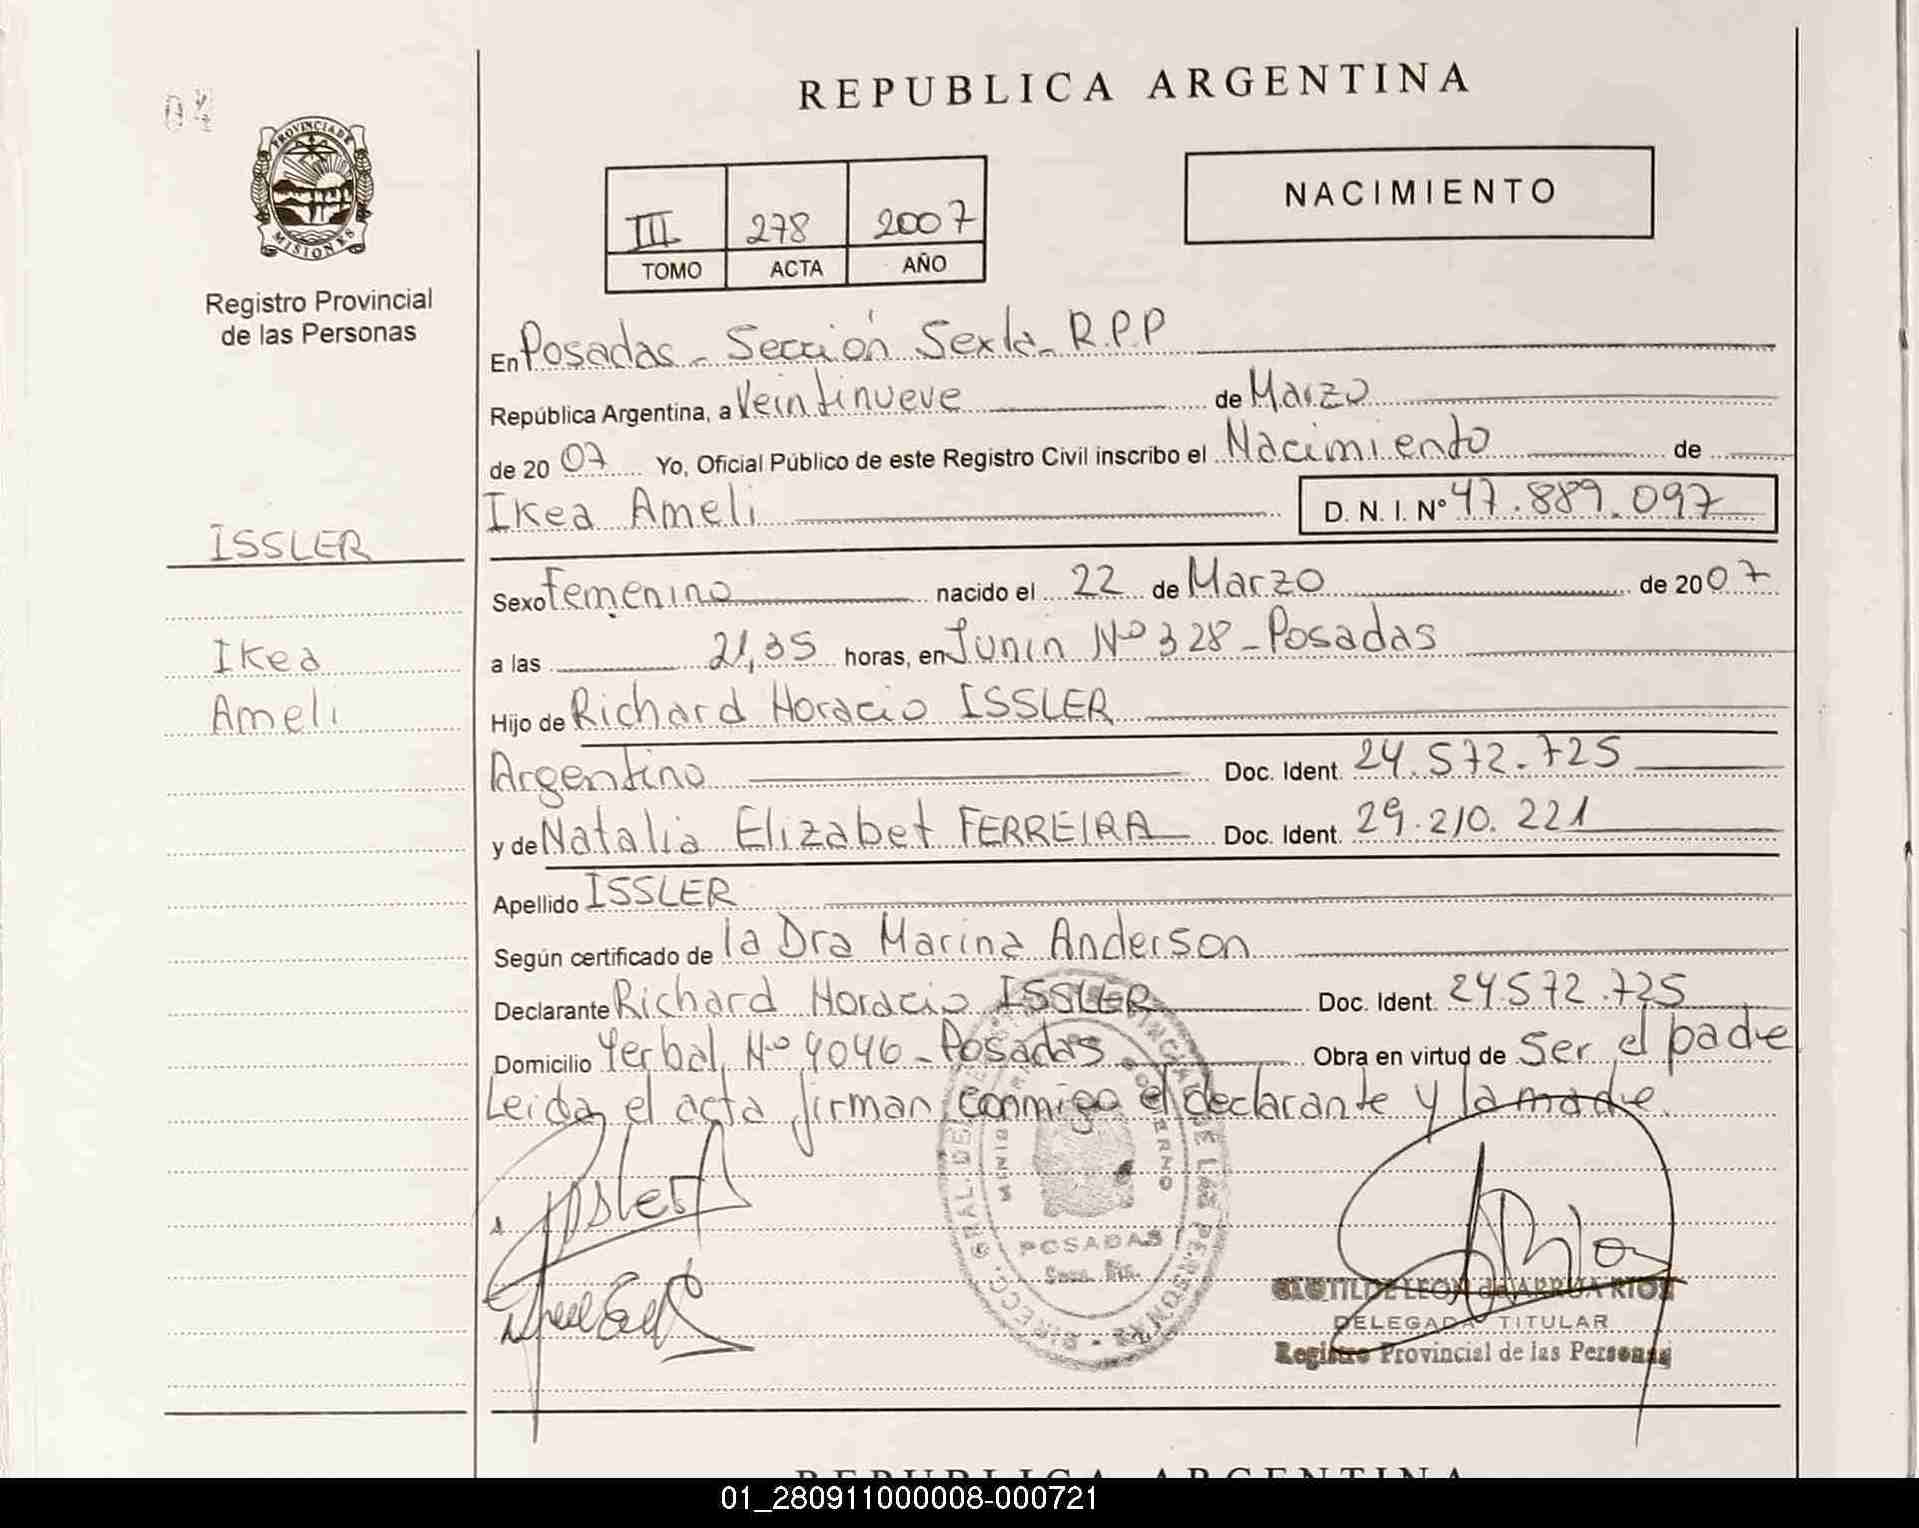 REPUBLICA ARGENTINA
04
PROVINCIA DE
MISIONES
Registro Provincial
de las Personas
NACIMIENTO
III 278 2007
TOMO ACTA AÑO
En Posadas - Sección Sexta - R.P.P
República Argentina, a Veintinueve de Marzo
de 2007 Yo, Oficial Público de este Registro Civil inscribo el Nacimiento de
Ikea Ameli D. N. I. Nº 47.889.097
ISSLER
Sexo Femenino nacido el 22 de Marzo de 2007
Ikea
a las 21,35 horas, en Junin Nº 328 - Posadas
Ameli
Hijo de Richard Horacio ISSLER
Argentino Doc. Ident. 24.572.725
y de Natalia Elizabet FERREIRA Doc. Ident. 29.210.221
Apellido ISSLER
Según certificado de la Dra Marina Anderson
Declarante Richard Horacio ISSLER Doc. Ident. 24.572.725
Domicilio Yerbal Nº 4046 - Posadas Obra en virtud de Ser el padre
Leida el acta firman conmigo el declarante y la madre.
POSADAS
CLOTILDE LEON de ARRUA RIOS
DELEGADA TITULAR
Registro Provincial de las Personas
REPUBLICA ARGENTINA
01_280911000008-000721